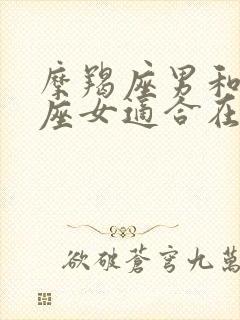 摩羯座男和
座女适合在
欲破蒼穹九萬